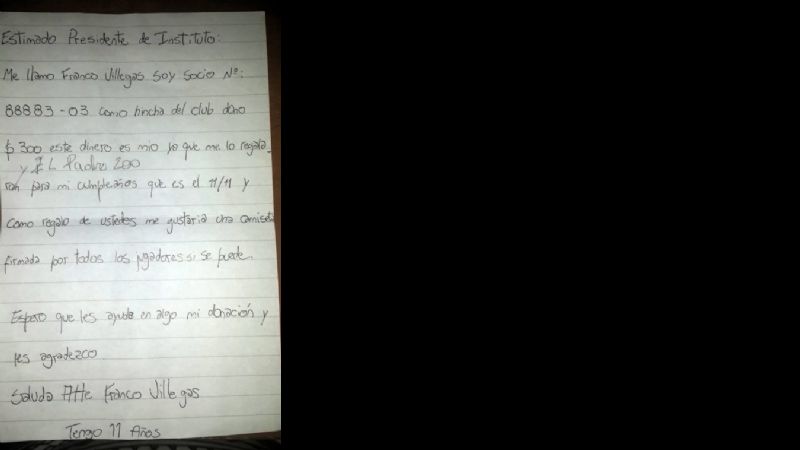 Estimado Presidente de Instituto:
Me llamo Franco Villegas soy socio Nº:
88883-03 como hincha del club dono
$ 300 este dinero es mio ya que me lo regala-
y EL Padre 200
ron para mi cumpleaños que es el 11/11 y
como regalo de ustedes me gustaria una camiseta
firmada por todos los jugadores si se puede.
Espero que les ayude en algo mi donación y
les agradezco
Saluda Atte Franco Villegas
Tengo 11 Años